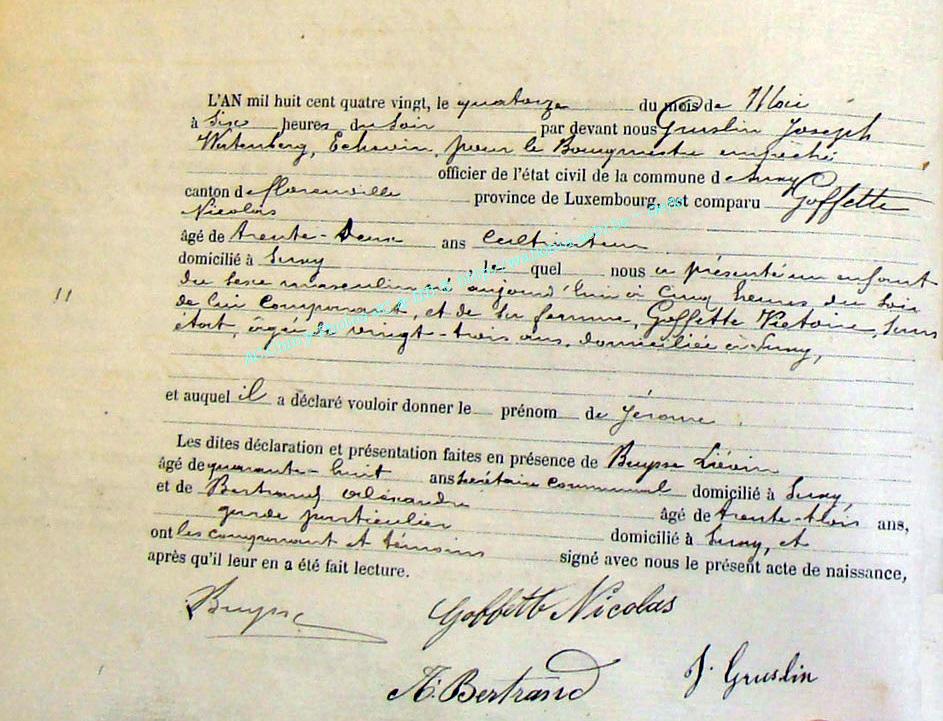 L'AN mil huit cent quatre vingt, le quatorze du mois de Mai
à Six heures du Soir par devant nous Gruslin Joseph
Echevin, pour le Bourgmestre empeché
officier de l'état civil de la commune de Suxy
canton de florenville province de Luxembourg, est comparu Goffette
Nicolas
âgé de trente-Deux ans Cultivateur
domicilié à Suxy le quel nous a présenté un enfant
du sexe masculin né aujourd'hui à cinq heures du soir
de lui comparant, et de sa femme, Goffette Victoire, Sans
état, âgée de vingt-trois ans, domiciliée à Suxy,
11
et auquel il a déclaré vouloir donner le prénom de Jérome
Les dites déclaration et présentation faites en présence de Buysse Liévin
âgé de quarante-huit ans Secrétaire communal domicilié à Suxy
et de Bertrand Alexandre âgé de trente-trois ans,
garde particulier domicilié à Suxy, et
ont les comparant et témoins signé avec nous le présent acte de naissance,
après qu'il leur en a été fait lecture.
Buysse Goffette Nicolas
A. Bertrand J. Gruslin